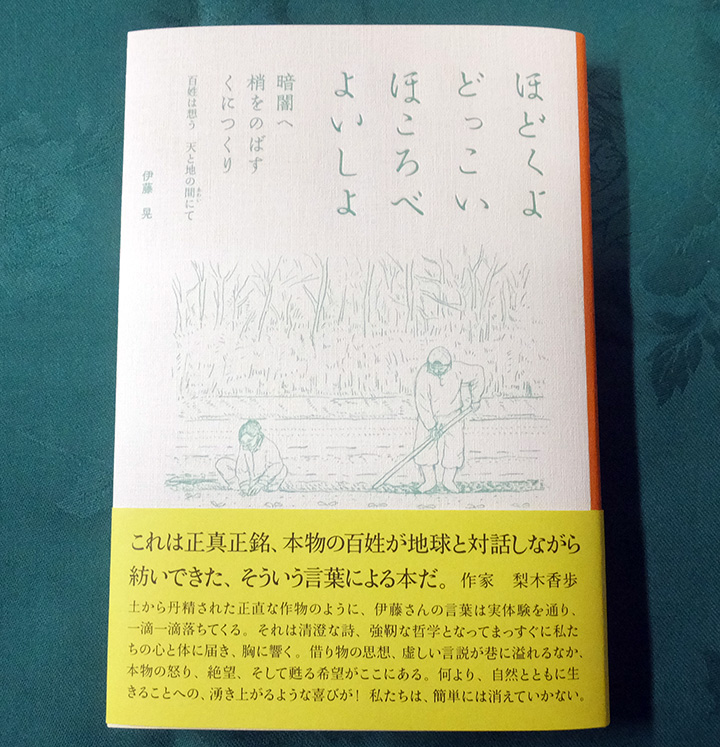 ほどくよ
どっこい
ほころべ
よいしよ
暗闇へ
梢をのばす
くにつくり
百姓は想う 天と地の間にて
あわい
伊藤 晃
これは正真正銘、本物の百姓が地球と対話しながら
紡いできた、そういう言葉による本だ。 作家 梨木香歩
土から丹精された正直な作物のように、伊藤さんの言葉は実体験を通り、
一滴一滴落ちてくる。それは清澄な詩、強靭な哲学となってまっすぐに私た
ちの心と体に届き、胸に響く。借り物の思想、虚しい言説が巷に溢れるなか、
本物の怒り、絶望、そして甦る希望がここにある。何より、自然とともに生
きることへの、湧き上がるような喜びが! 私たちは、簡単には消えていかない。